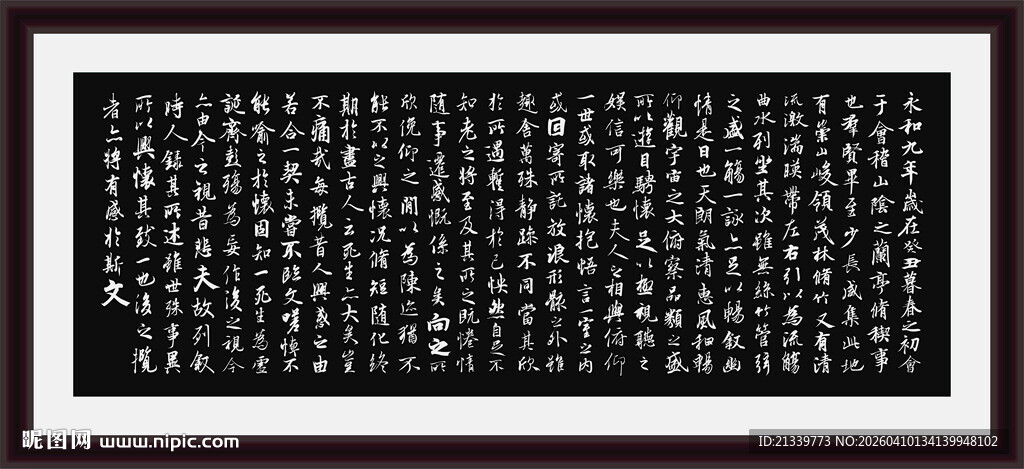 永和九年歲在癸丑暮春之初會
于會稽山陰之蘭亭脩稧事
也羣賢畢至少長咸集此地
有崇山峻領茂林脩竹又有清
流激湍暎帶左右引以為流觴
曲水列坐其次雖無絲竹管弦
之盛一觴一詠亦足以暢敘幽
情是日也天朗氣清惠風和暢
仰觀宇宙之大俯察品類之盛
所以遊目騁懷足以極視聽之
娛信可樂也夫人之相與俯仰
一世或取諸懷抱悟言一室之內
或因寄所託放浪形骸之外雖
趣舍萬殊靜躁不同當其欣
於所遇暫得於己怏然自足不
知老之將至及其所之既惓情
隨事遷感慨係之矣向之所
欣俛仰之閒以為陳迹猶不
能不以之興懷況脩短隨化終
期於盡古人云死生亦大矣豈
不痛哉每攬昔人興感之由
若合一契未嘗不臨文嗟悼不
能喻之於懷固知一死生為虛
誕齊彭殤為妄作後之視今
亦由今之視昔悲夫故列敘
時人錄其所述雖世殊事異
所以興懷其致一也後之攬
者亦將有感於斯文
昵图网 www.nipic.com
ID:21339773 NO:20260410134139948102